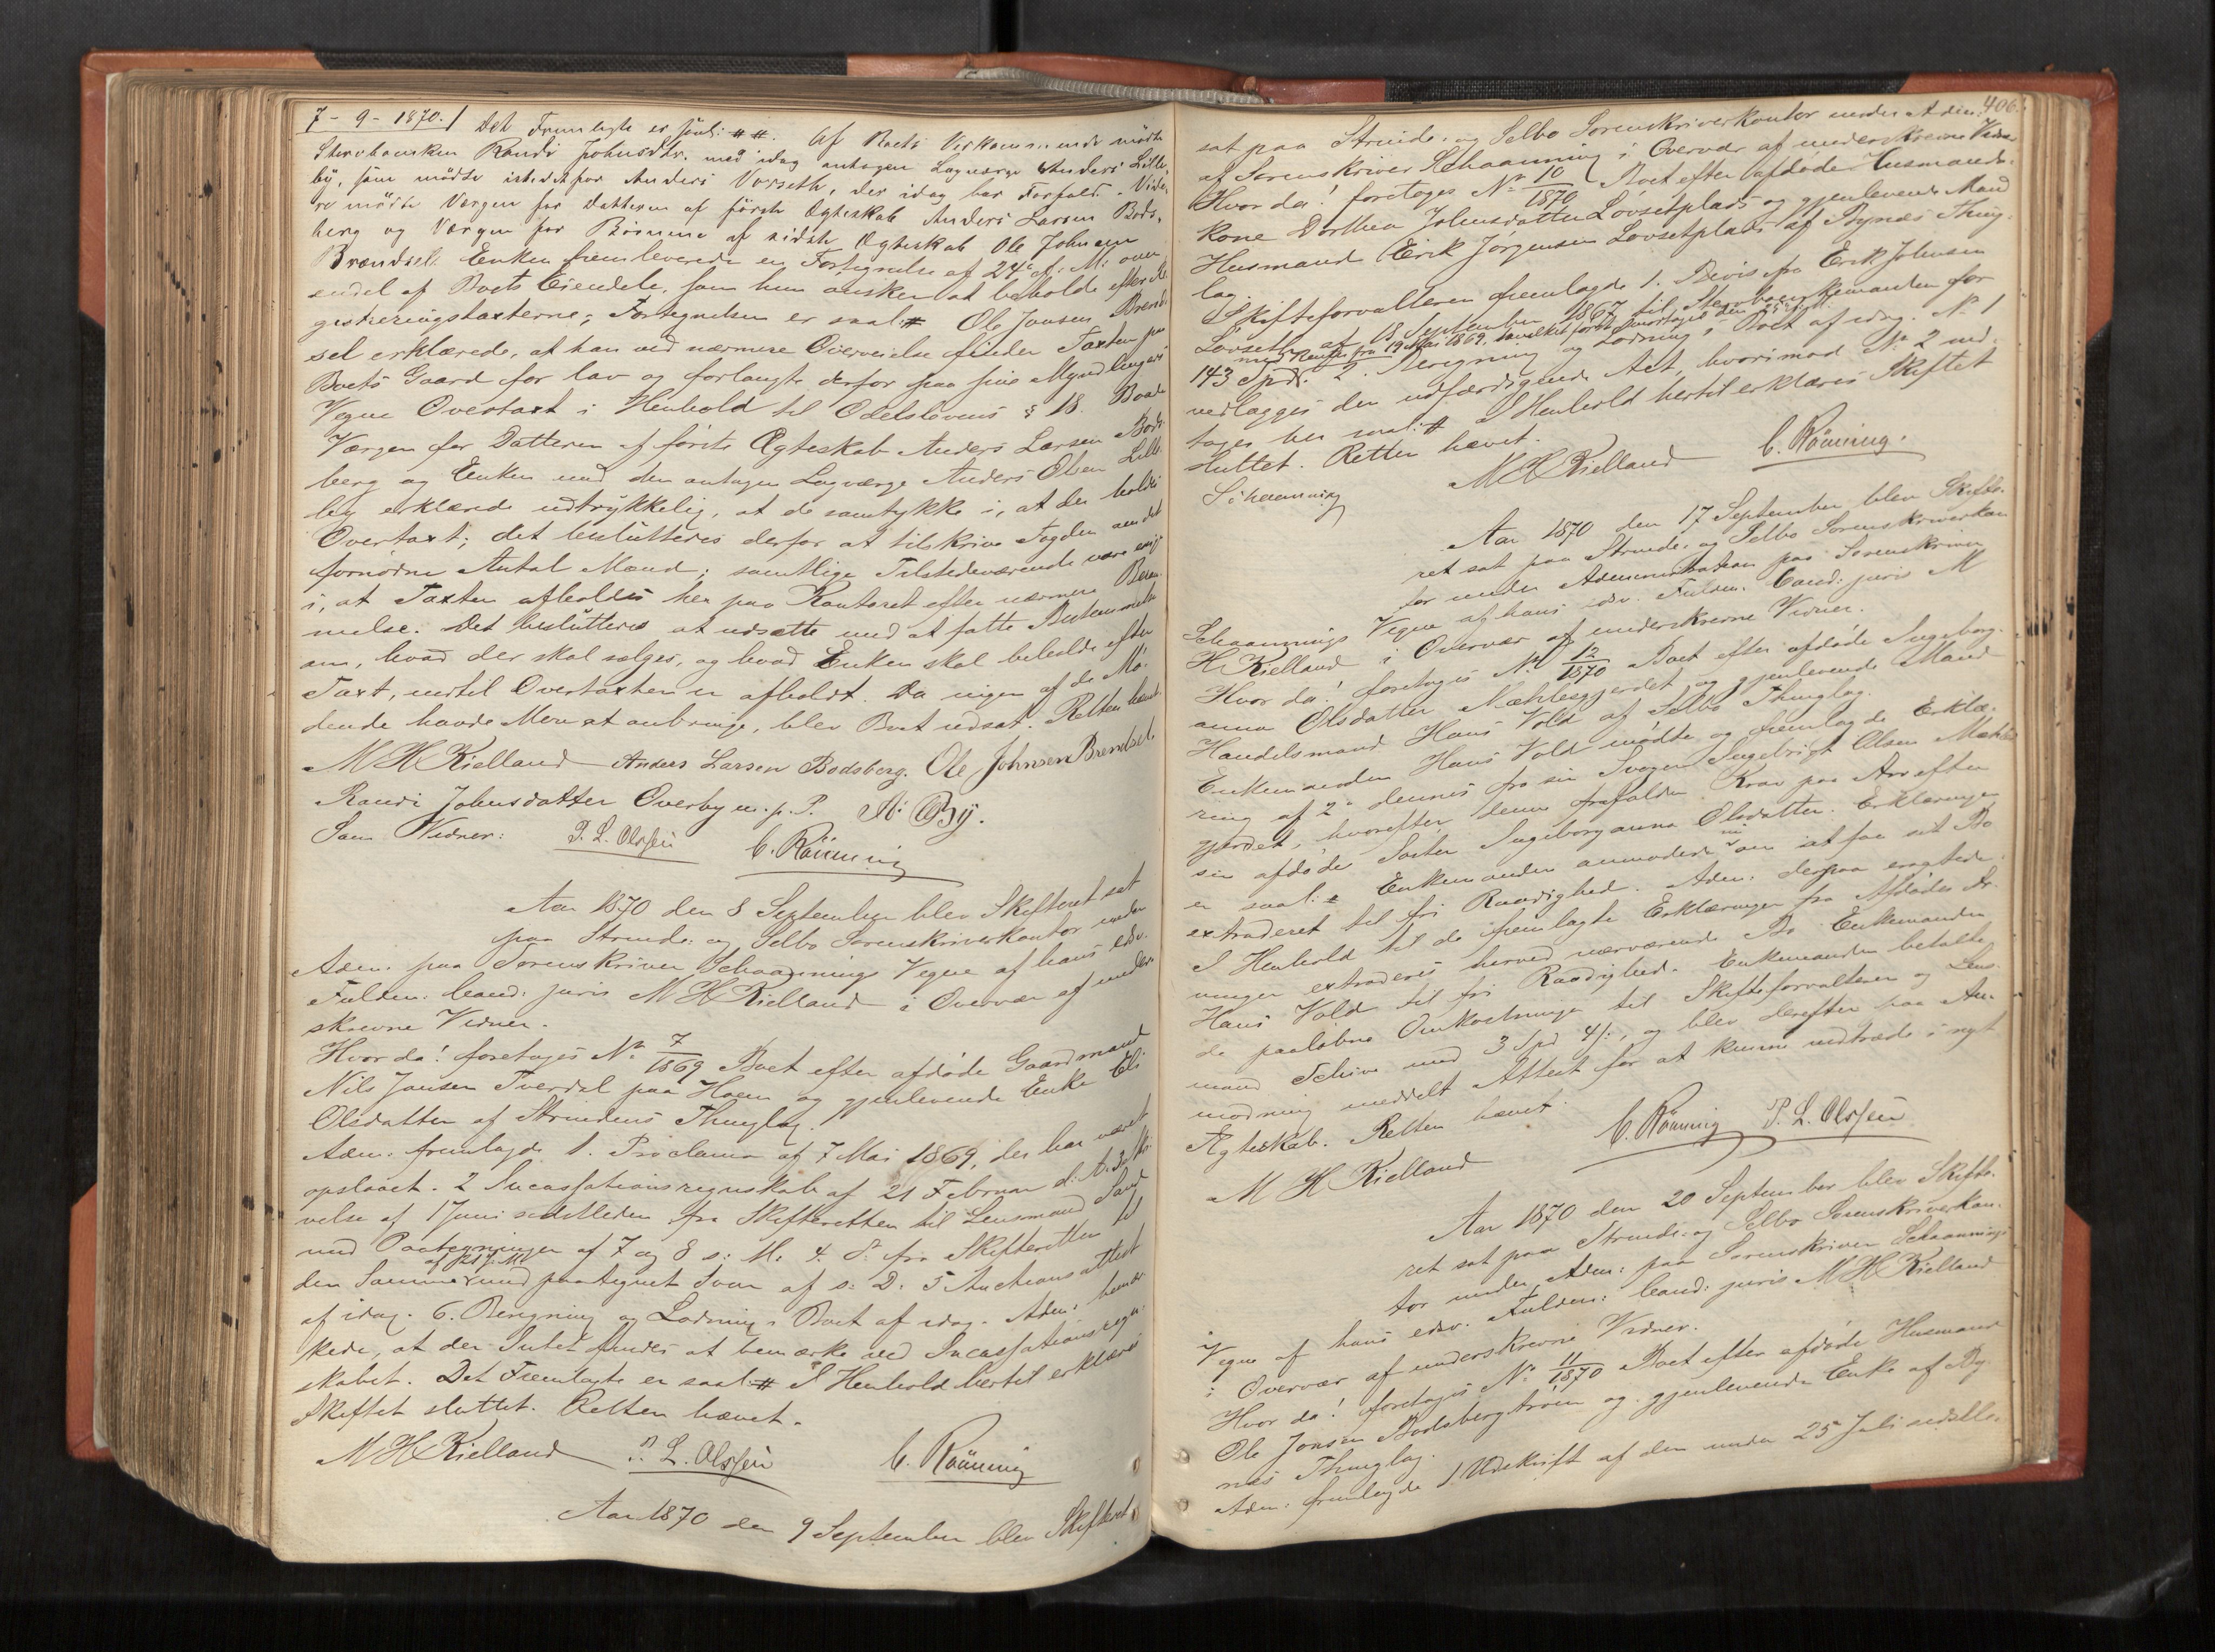 7 - 9 - 1870. / Det Fremlagte er saal: ##. Af Boets Vedkommende mödte
Stervboenken Randi Johnsdtr. med idag antagen Lagværge Anders Lille-
by, som mödte istedetfor Anders Vorseth, der idag har Forfald. - Vide-
re mödte Værgen for Datteren af förste Ægteskab Anders Larsen Bods-
berg og Værgen for Börnene af sidste Ægteskab Ole Johnsen
Brendsel. Enken fremleverede en Fortegnelse af 24de af: M: over
endel af Boets Eiendele, som hun önsker at beholde efter Re-
gistreringstaxterne; Fortegnelsen er saal: # Ole Jonsen Brend-
sel erklærede, at han ved nærmere Overveielse finder Taxten paa
Boets Gaard for lav og forlangte derfor paa sine Myndlingers
Vegne Overtaxt i Henhold til Odelslovens § 18. Baade
Værgen for Datteren af förste Ægteskab Anders Larsen Bods-
berg og Enken med den antagne Lagværge Anders Olsen Lille-
by erklærede udtrykkelig, at de samtykke i, at der holdes
Overtaxt; det besluttedes derfor at tilskrive Fogden om det
fornödne Antal Mænd; samtlige Tilstedeværende vare enige
i, at Taxten afholdes her paa Kontoret efter nærmere Beram-
melse. Det besluttedes at udsætte med at fatte Bestemmelse
om, hvad der skal sælges, og hvad Enken skal beholde efter
Taxt, indtil Overtaxten er afholdt. Da ingen af de Mö-
dende havde Mere at anbringe, blev Boet udsat. Retten hævet.
M H Kielland Anders Larsen Bodsberg. Ole Johnsen Brendsel
Randi Johnsdatter Overby m. p. P. A: By.
Som Vidner: P. L. Olssen C. Rönning
Aar 1870 den 8 September blev Skifteret sat
paa Strinde- og Selbo Sorenskriverkontor under
Adm. paa Sorenskriver Schaannings Vegne af hans edsv.
Fuldm: Cand: juris M H Kielland i Overvær af under-
skrevne Vidner.
Hvor da! foretoges No 7/1869 Boet efter afdöde Gaardmand
Nils Jansen Tverdal paa Hoem og gjenlevende Enke Eli
Olsdatter af Strindens Thinglag.
Adm. fremlagde 1. Proclama af 7 Mai 1869, der har været
opslaaet. 2 Incassationsregnskab af 21 Februar d: A. 3 Skri-
velse af 1 Juni sidstleden fra Skifteretten til Lensmand Sand
med Paategninger af 7 og 8 s: M: 4. do fra Skifteretten til
den Samme med paategnet Svar af s: D. 5 Auctionsattest
af idag. 6. Beregning og Lodning i Boet af idag. Adm: bemær-
kede, at der Intet findes at bemærke ved Incassationsregn-
skabet. Det Fremlagte er saal: # I Henhold hertil erklæres
Skiftet sluttet. Retten hævet.
M H Kielland P. L. Olssen C. Rönning
Aar 1870 den 9 September blev Skifteret
406.
sat paa Strinde- og Selbo Sorenskriverkontor under Adm.
af Sorenskriver Schaanning i Overvær af underskrevne Vidner
Hvor da! foretoges No 10/1870 Boet efter afdöde Husmands-
kone Dorthea Johnsdatter Lövsetplads og gjenlevende Mand
Husmand Erik Jörgensen Lövsetplads af Bynæs Thing-
lag.
Skifteforvalteren fremlagde 1. Bevis fra Erik Johnsen
Lövseth af 18 September 1867 til Stervboenkemanden for
med Renter fra 19 Mai 1869, hvorved
143 Spd. 2. Beregning og Lodning i Boet af idag. No 1
vedlægges den udfærdigende Act, hvorimod No 2 ind-
tages her saal: # I Henhold hertil erklæres Skiftet
sluttet. Retten hævet.
M H Kielland C. Rönning.
Schaanning
Aar 1870 den 17 September blev Skifte-
ret sat paa Strinde- og Selbo Sorenskriverkon-
tor under Administration paa Sorenskriver
Schaannings Vegne af hans edsv. Fuldm. Cand: juris M
H Kielland i Overvær af underskrevne Vidner.
Hvor da! foretoges No 12/1870 Boet efter afdöde Ingeborg-
anna Olsdatter Mæhlesgjerdet og gjenlevende Mand
Handelsmand Hans Vold af Selbo Thinglag.
Enkemanden Hans Vold mödte og fremlagde Erklæ-
ring af 2 dennes fra sin Svoger Ingebrigt Olsen Mæhles-
gjerdet, hvorefter denne frafalder Krav paa Arv efter
sin afdöde Söster Ingeborganna Olsdatter. Erklæringen
er saal: # Enkemanden anmodede nu om at faa sit Bo
extraderet til fri Raadighed. Adm. derpaa eragtede:
I Henhold til de fremlagte Erklæringer fra Afdödes Ar-
vinger extraderes herved nærværende Bo Enkemanden
Hans Vold til fri Raadighed. Enkemanden betalte
de paalöbne Omkostninger til Skifteforvalteren og Lens-
mand Schive med 3 Spd 4 /:, og blev derefter paa An-
modning meddelt Attest for at kunne indtræde i nyt
Ægteskab. Retten hævet.
M H Kielland C. Rönning P. L. Olssen
Aar 1870 den 20 September blev Skifte-
ret sat paa Strinde- og Selbo Sorenskriverkon-
tor under Adm: paa Sorenskriver Schaannings
Vegne af hans edsv. Fuldm: Cand: juris M H Kielland
i Overvær af underskrevne Vidner.
Hvor da! foretoges No 11/1870 Boet efter afdöde Husmand
Ole Jonsen Bodsbergtröen og gjenlevende Enke af By-
næs Thinglag.
Adm: fremlagde 1. Udskrift af den under 25 Juli sidstle-